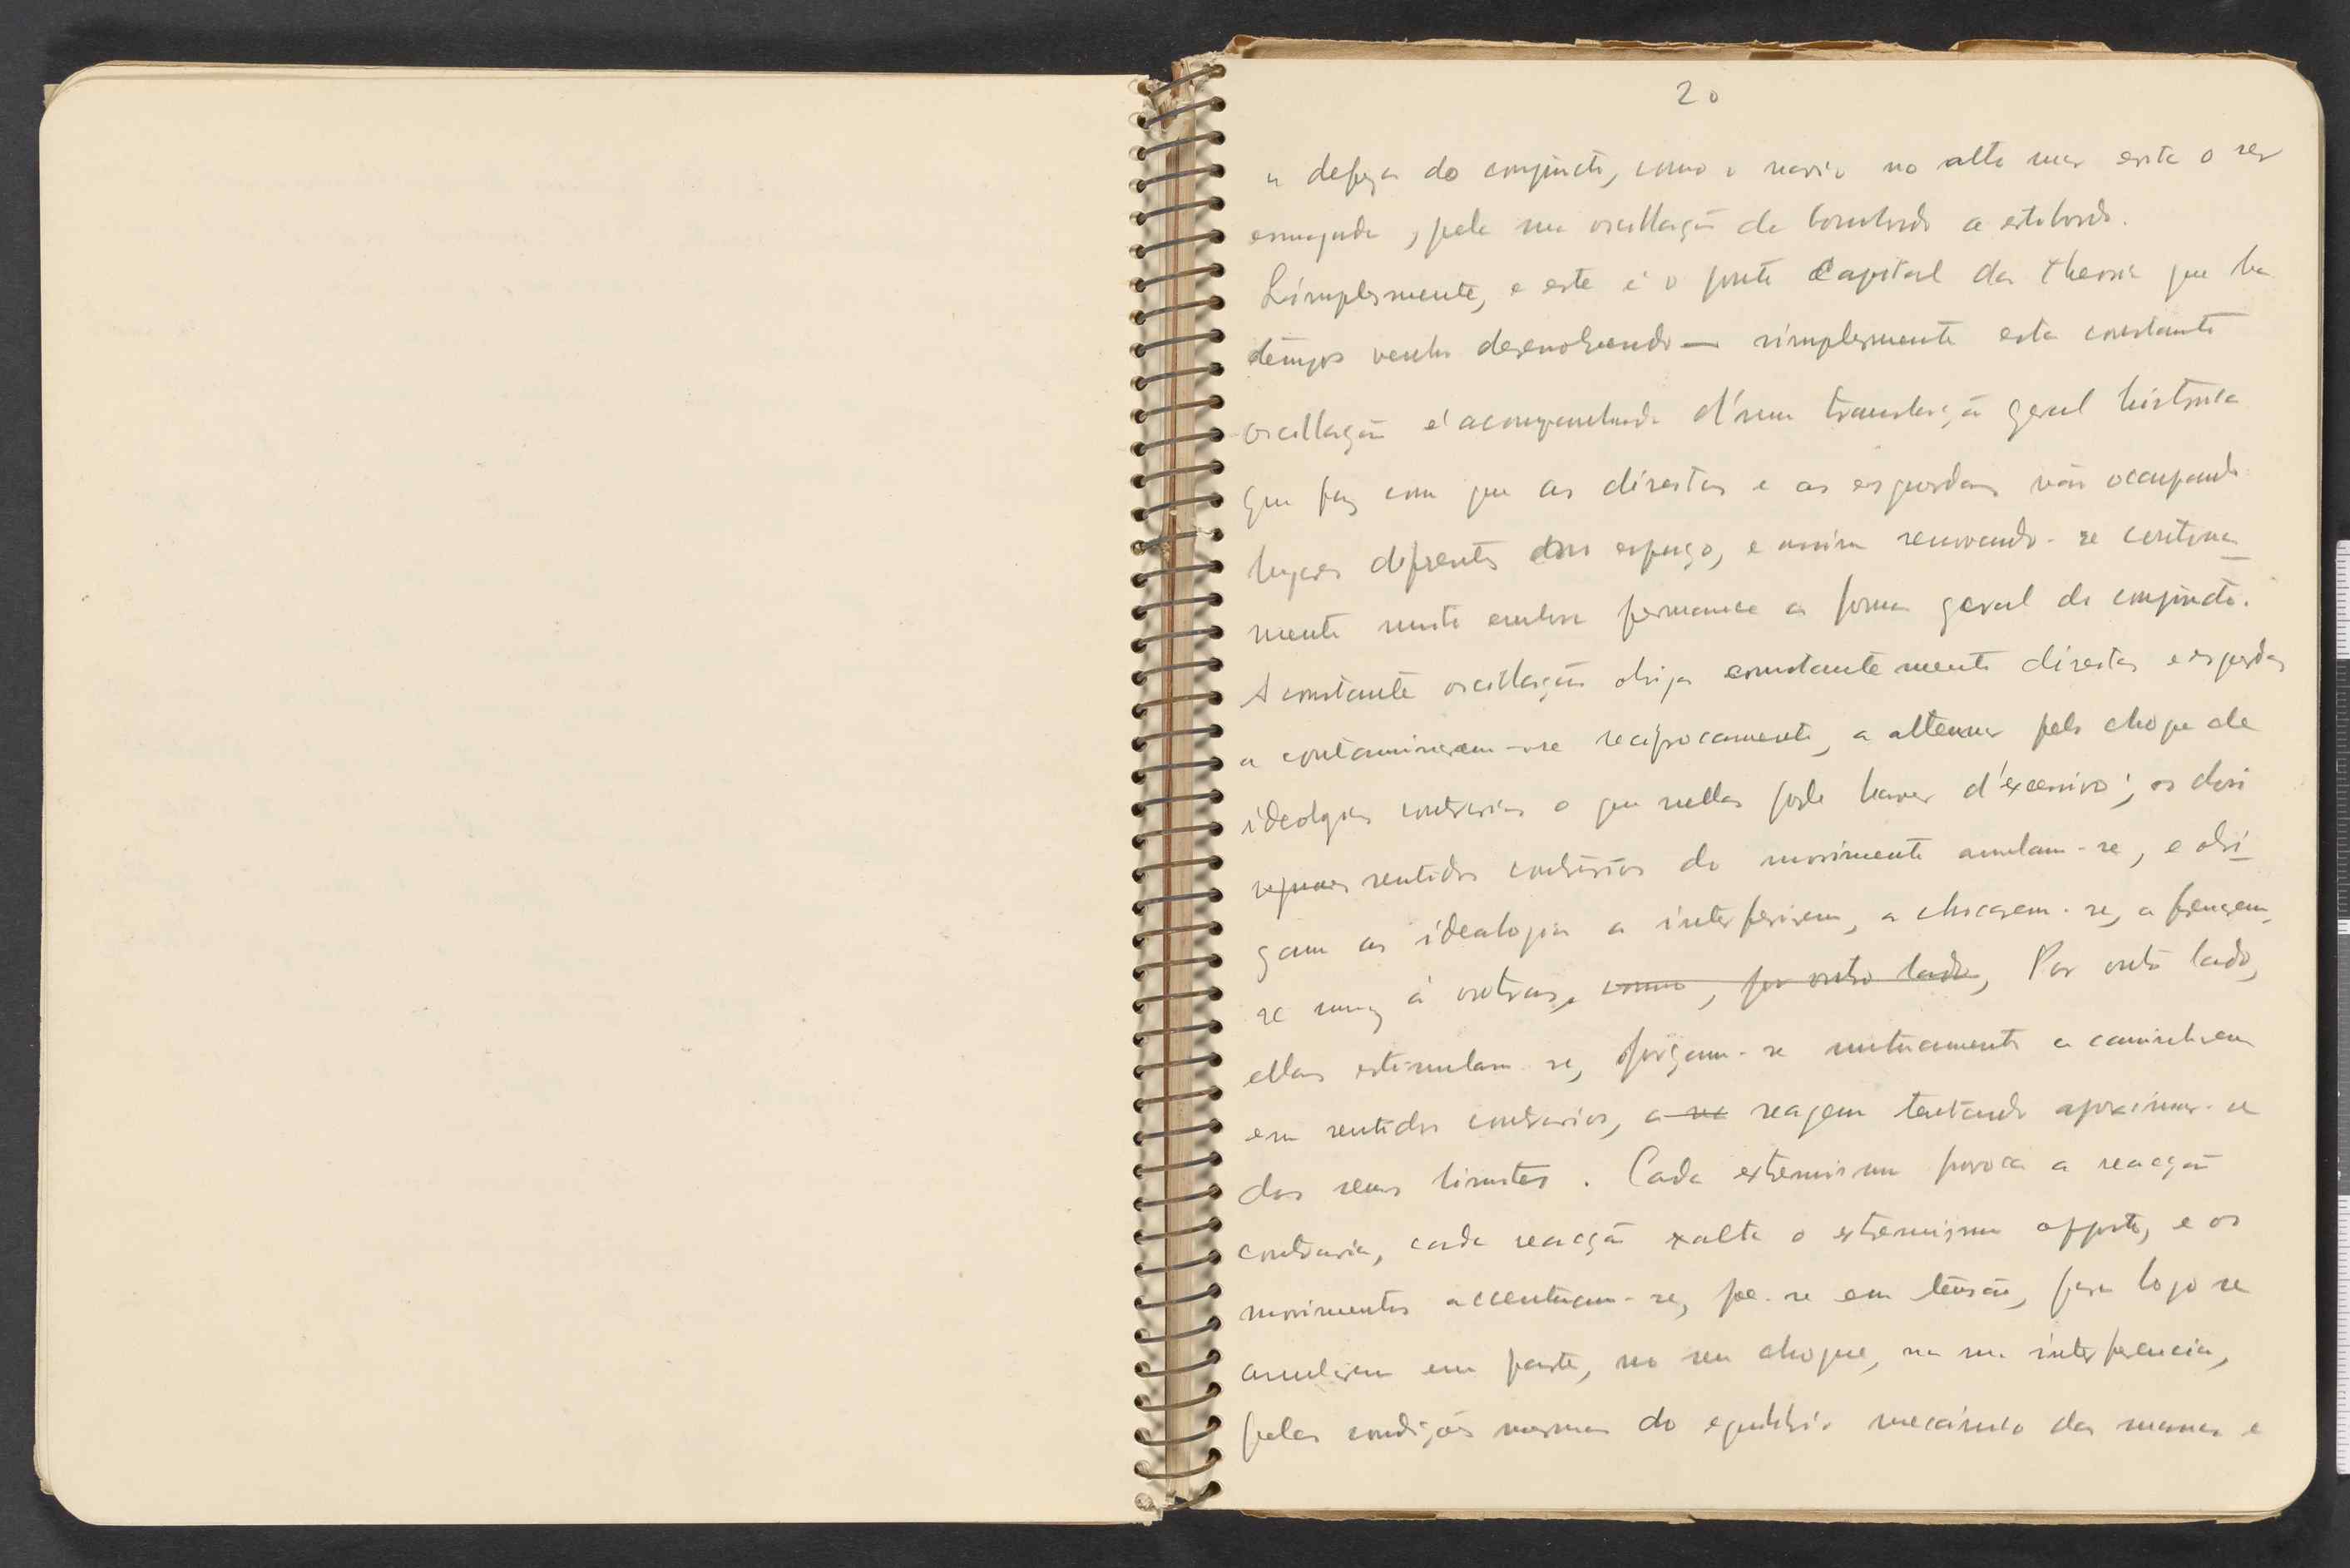 20
a defeza do conjuncto, como o navio no alto mar evita o ser
esmagado, pela sua oscillação de bombordo a estibordo.
Simplesmente, e este é o ponto capital da theoria que ha
tempos venho desenvolvendo — simplesmente esta constante
oscillação é acompanhada d'uma translação geral historica
que faz com que as direitas e as esquerdas vão occupando
lugares diferentes no espaço, e assim renovando-se continua-
mente muito embora permaneça a forma geral do conjuncto.
A constante oscillação obriga constantemente direitas e esquerdas
a contaminarem-se reciprocamente, a attenuar pelo choque de
ideologias contrarias o que nellas pode haver d'excessivo; os dois
sentidos contrários do movimento anulam-se, e obri-
gam as idealogias a interferirem, a chocarem-se, a frenarem-
se umas ás outras, como, por outro lado, Por outro lado,
ellas estimulam-se, forçam-se mutuamente a caminharem
em sentidos contrarios, a re reagem tentando aproximar-se
dos seus limites. Cada extremismo provoca a reacção
contraria, cada reacção exalta o extremismo opposto, e os
movimentos accentuam-se, põe-se em tensão, para logo se
anularem em parte, no seu choque, na sua interferencia,
pelas condições mesmas do equilibrio mecânico das massas e